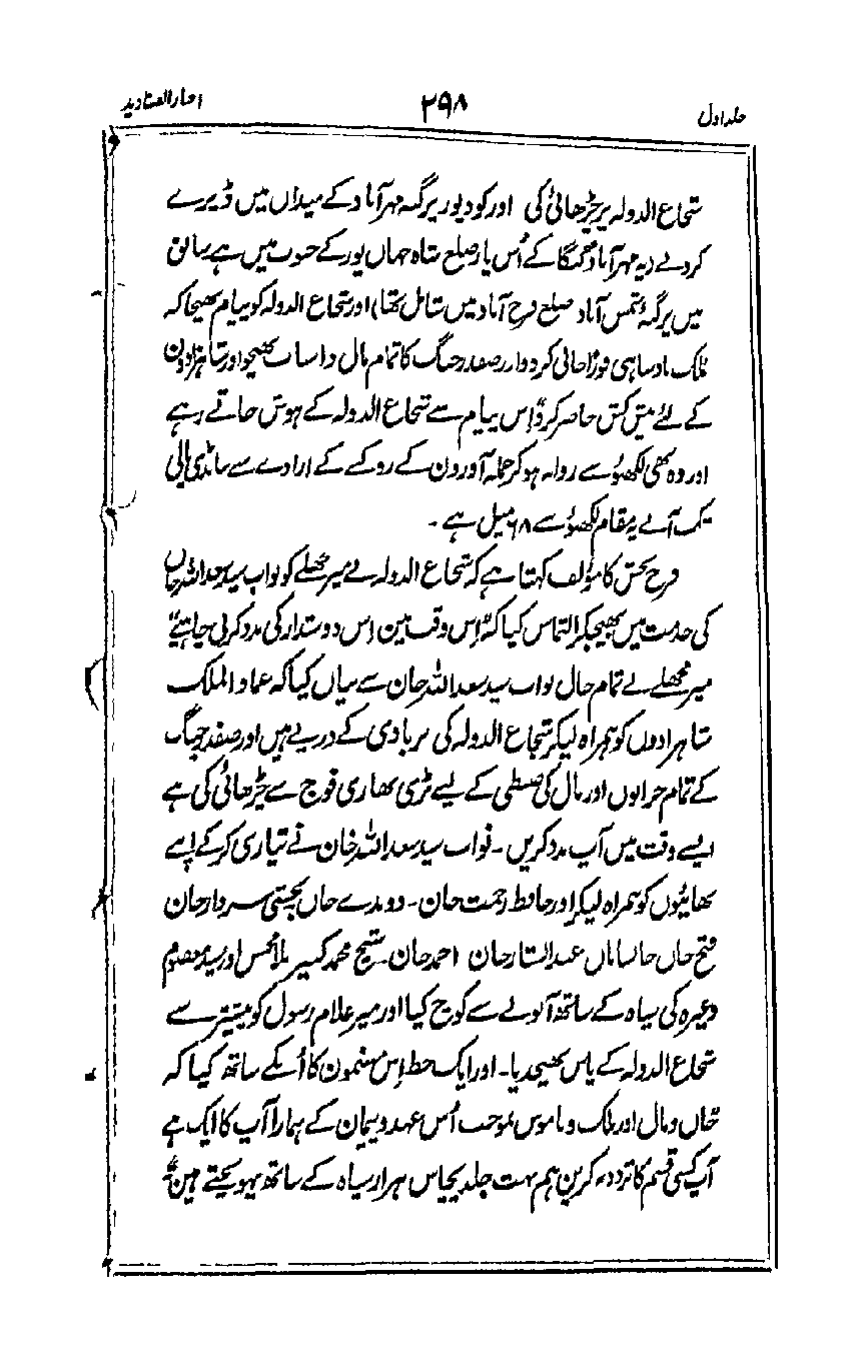 جلد اول ۲۹۸ اخبار الصنادید
شجاع الدولہ پر چڑھائی کی اور کود پور پرگنہ مہر آباد کے میدان میں ڈیرے
کر دیے (یہ مہر آباد گنگا کے اُس پار ضلع شاہ جہاں پور کے جنوب میں ہے سابق
میں پرگنہ شمس آباد ضلع فرخ آباد میں شامل تھا) اور شجاع الدولہ کو پیام بھیجا کہ
ملک بادشاہی فوراً خالی کر دو اور صفدر جنگ کا تمام مال و اسباب بھیجو اور شاہزادون
کے لئے پیش کش حاضر کرو، اِس پیام سے شجاع الدولہ کے ہوش جاتے رہے
اور وہ بھی لکھنؤ سے روانہ ہو کر حملہ آورون کے روکنے کے ارادے سے سانڈی پالی
تک آئے یہ مقام لکھنؤ سے ۶۸ میل ہے ۔
فرح بخش کا مؤلف کہتا ہے کہ شجاع الدولہ نے میر مجھلے کو نواب سید سعد اللہ خاں
کی خدمت میں بھیجکر التماس کیا کہ اِس وقت مین اِس دوستدار کی مدد کرنی چاہیئے
میر مجھلے نے تمام حال نواب سید سعد اللہ خان سے بیاں کیا کہ عماد الملک
شاہزادوں کو ہمراہ لیکر شجاع الدولہ کی بربادی کے درپے ہیں اور صفدر جنگ
کے تمام خزانوں اور مال کی ضبطی کے لیے بڑی بھاری فوج سے چڑھائی کی ہے
ایسے وقت میں آپ مدد کریں ۔ نواب سید سعد اللہ خان نے تیاری کر کے اپنے
بھائیوں کو ہمراہ لیکر اور حافظ رحمت خان ۔ دوندے خاں بخشی سردار خان
فتح خاں خانساماں عبد الستار خان احمد خان شیخ محمد کبیر ملا محسن اور سید معصوم
وغیرہ کی سپاہ کے ساتھ آنولے سے کوچ کیا اور میر غلام رسول کو پیشتر سے
شجاع الدولہ کے پاس بھیجدیا ۔ اور ایک خط اِس مضمون کا اُنکے ساتھ کیا کہ
جاں و مال اور ملک و ناموس بموجب اُس عہد و پیمان کے ہمارا آپ کا ایک ہے
آپ کسی قسم کا تردد نہ کرین ہم بہت جلد پچاس ہزار سپاہ کے ساتھ پہونچتے ہین